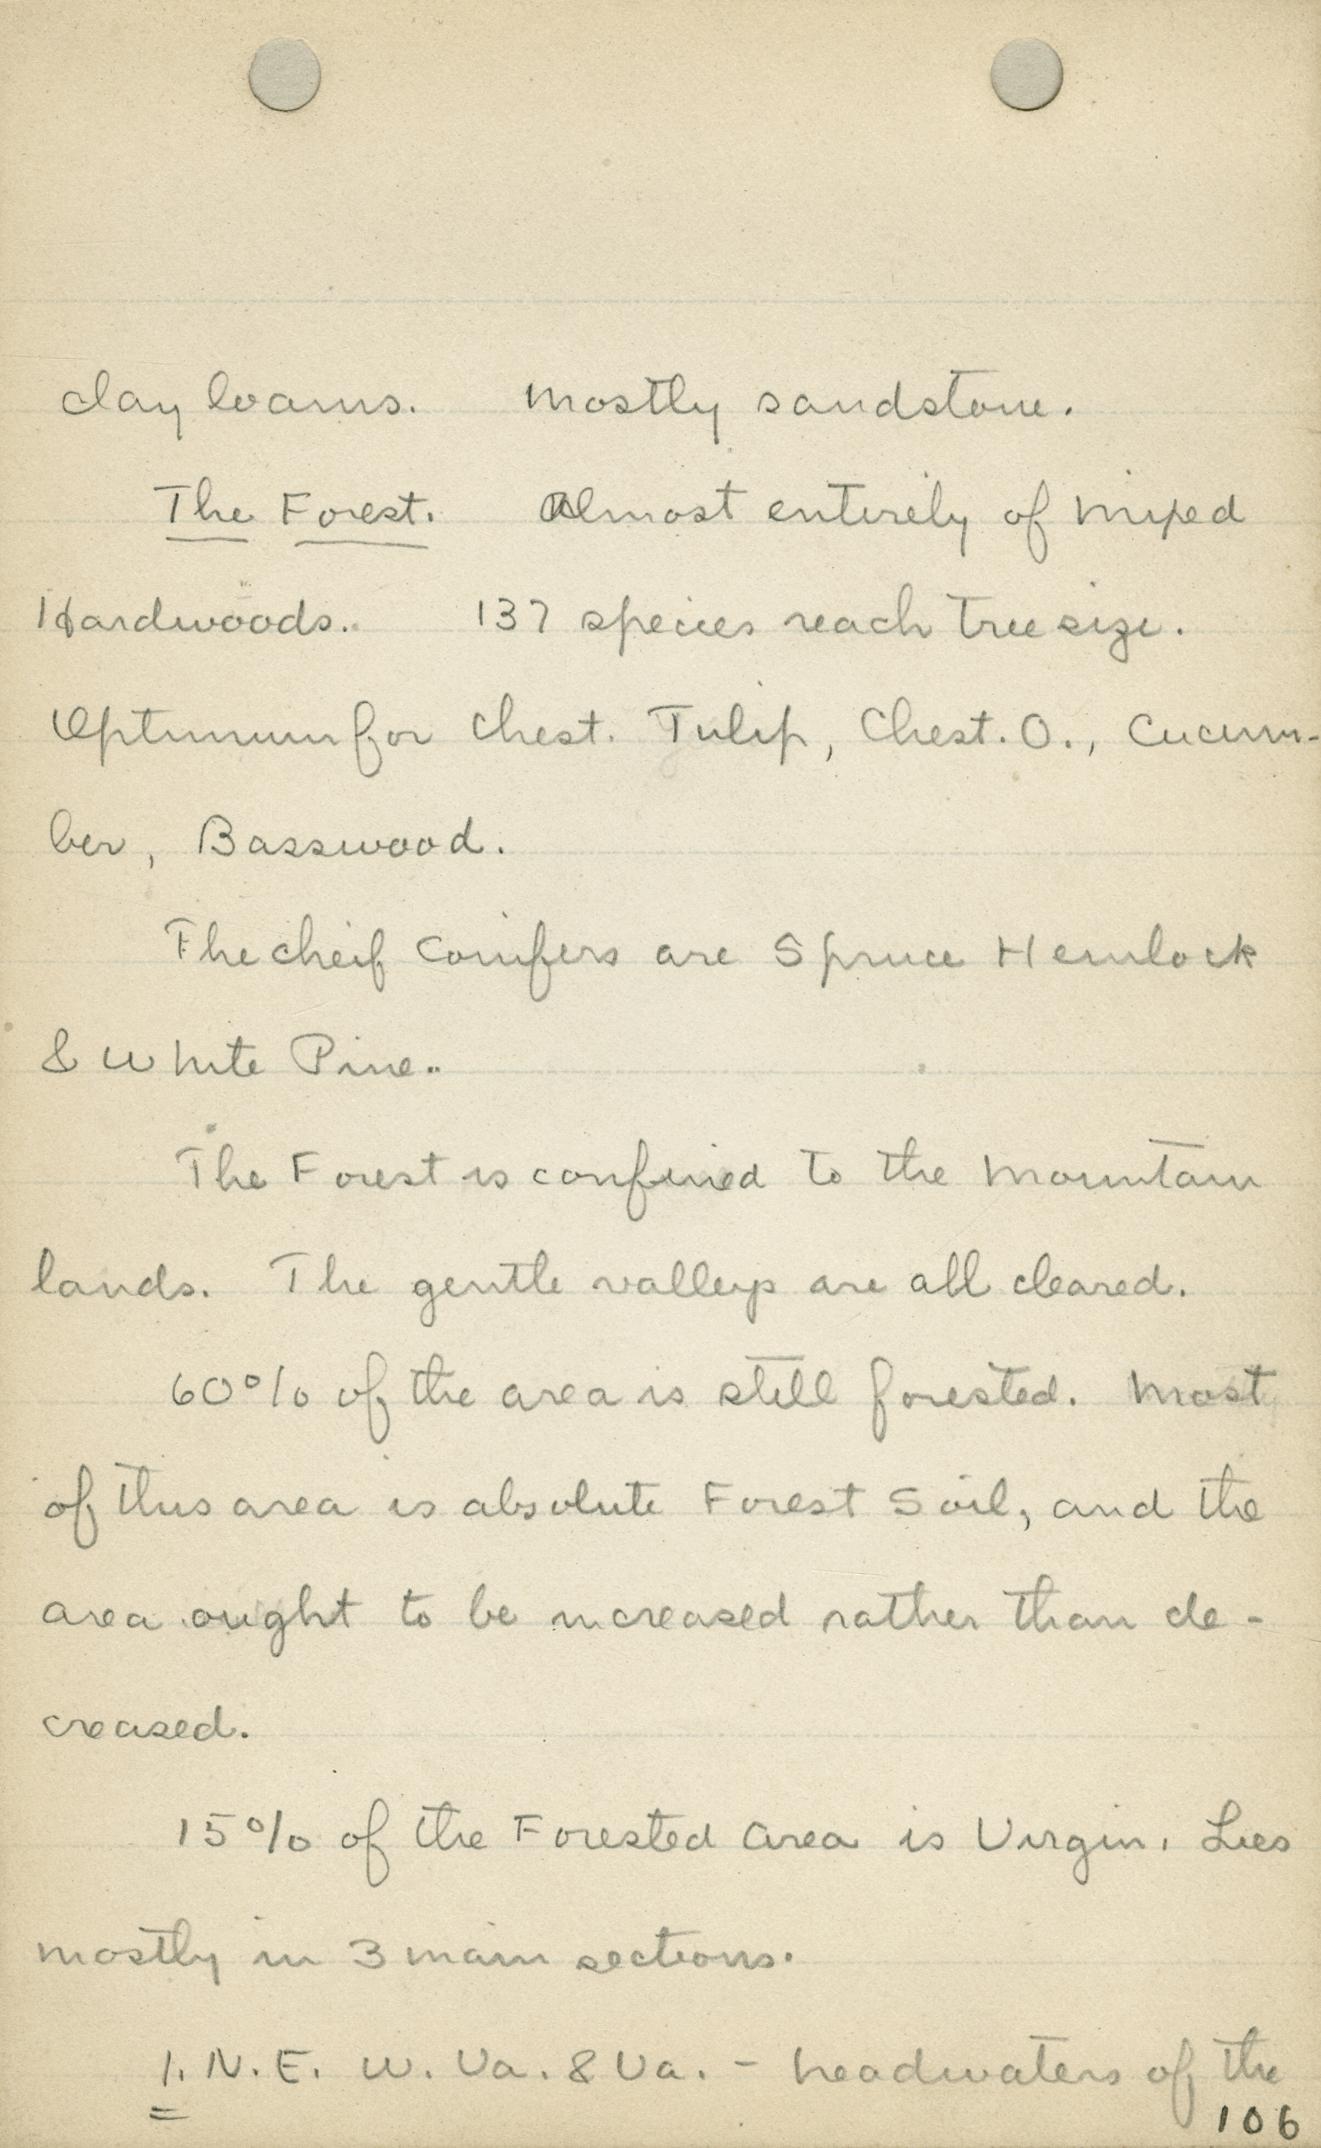 clay loams. Mostly sandstone.
The Forest. Almost entirely of Mixed
Hardwoods. 137 species reach tree size.
Optimum for Chest. Tulip, Chest. O., Cucum-
ber, Basswood.
The cheif Conifers are Spruce Hemlock
& White Pine.
The Forest is confined to the Mountain
lands. The gentle valleys are all cleared.
60% of the area is still forested. Most
of this area is absolute Forest Soil, and the
area ought to be increased rather than de-
creased.
15% of the Forested Area is Virgin. Lies
mostly in 3 main sections.
1. N.E. W. Va. & Va. - headwaters of the
106